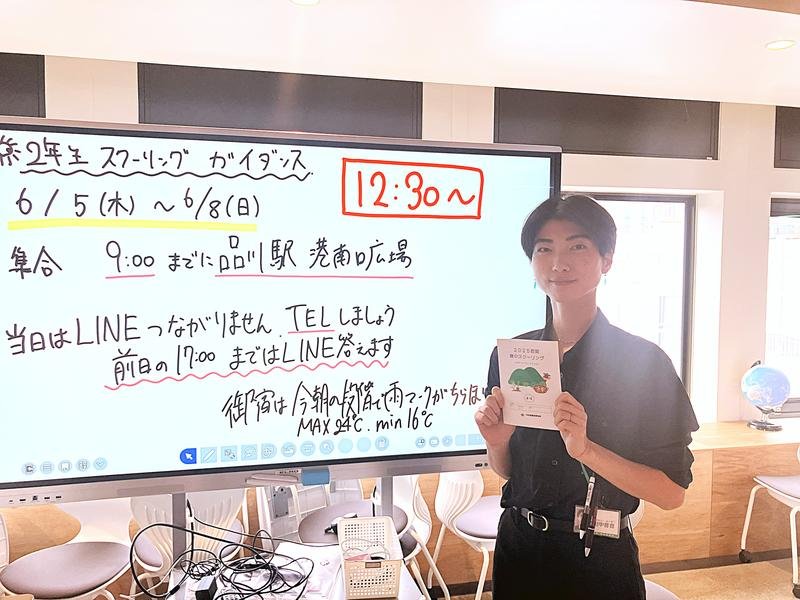 2年生 スクーリング ガイダンス
12:30～
6/5(木) ～ 6/8(日)
集合 9:00 までに品川駅 港南口広場
当日はLINEつながりません。TELしましょう
前日の17:00 まではLINE答えます
御宿は今朝の段階で雨マークがちらほ
MAX 24℃. min 16℃
2025前期
集中スクーリング